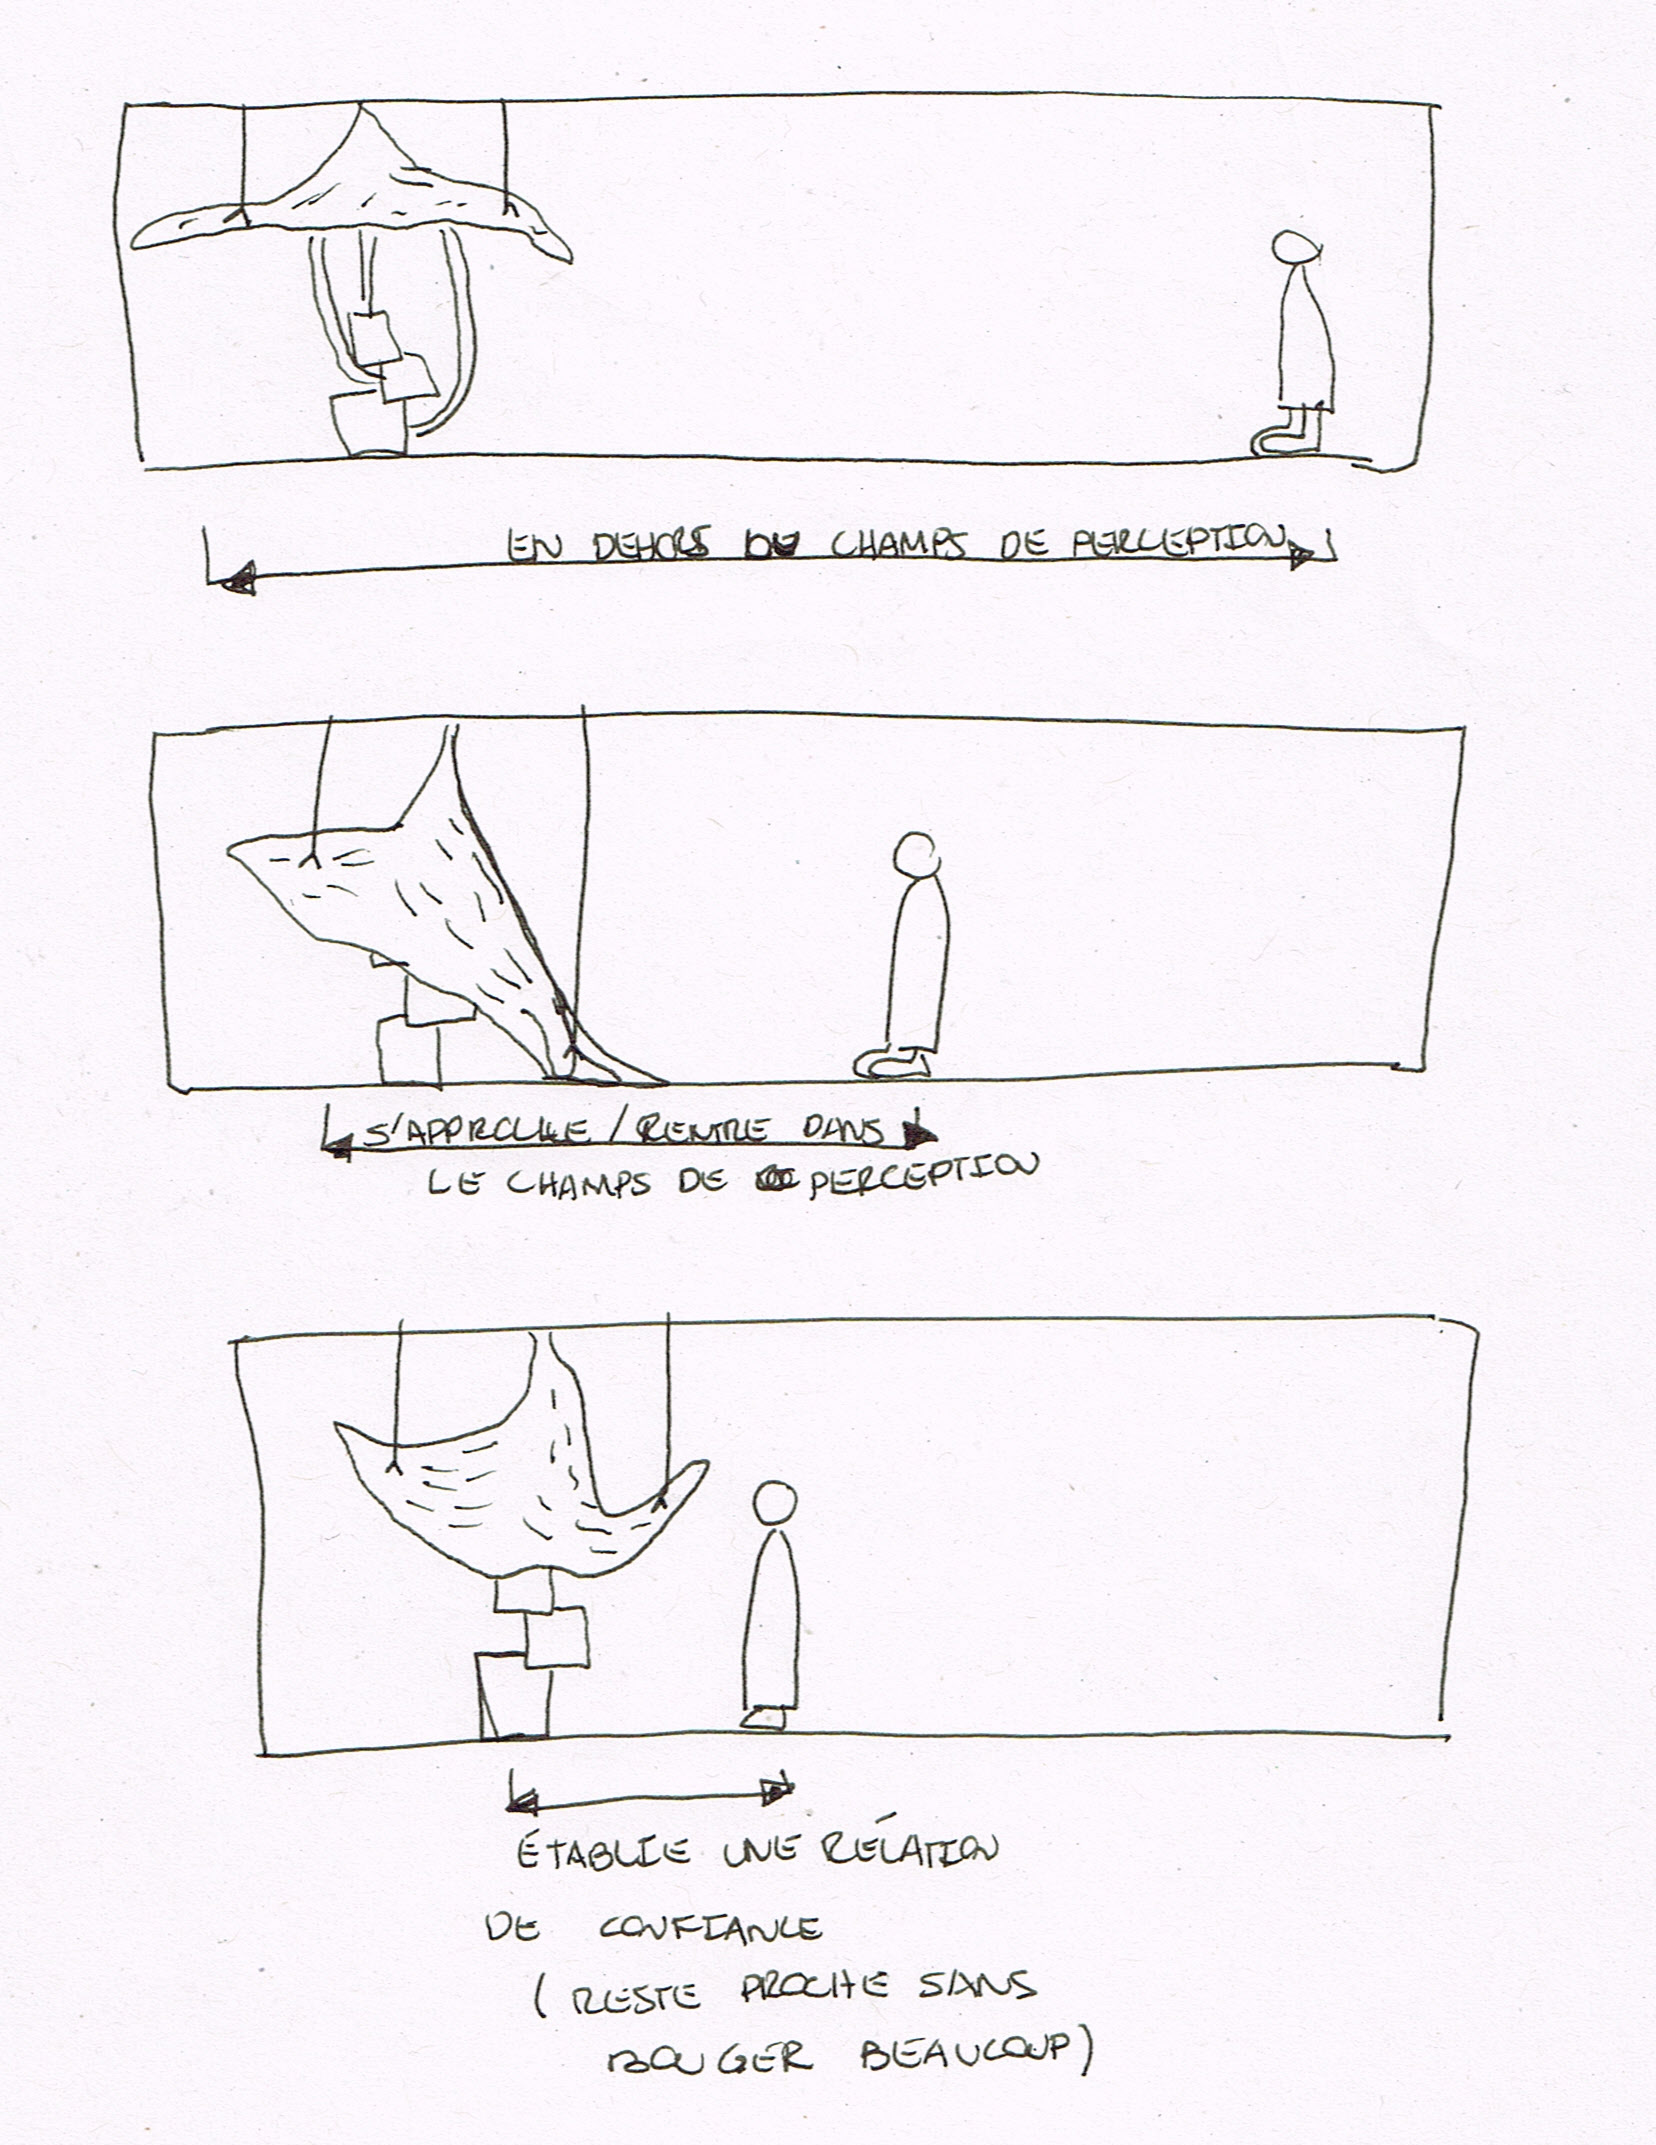 EN DEHORS DE CHAMPS DE PERCEPTION
S'APPROCHE / RENTRE DANS
LE CHAMPS DE PERCEPTION
ÉTABLIE UNE RÉLATION
DE CONFIANCE
( RESTE PROCHE SANS
BOUGER BEAUCOUP)